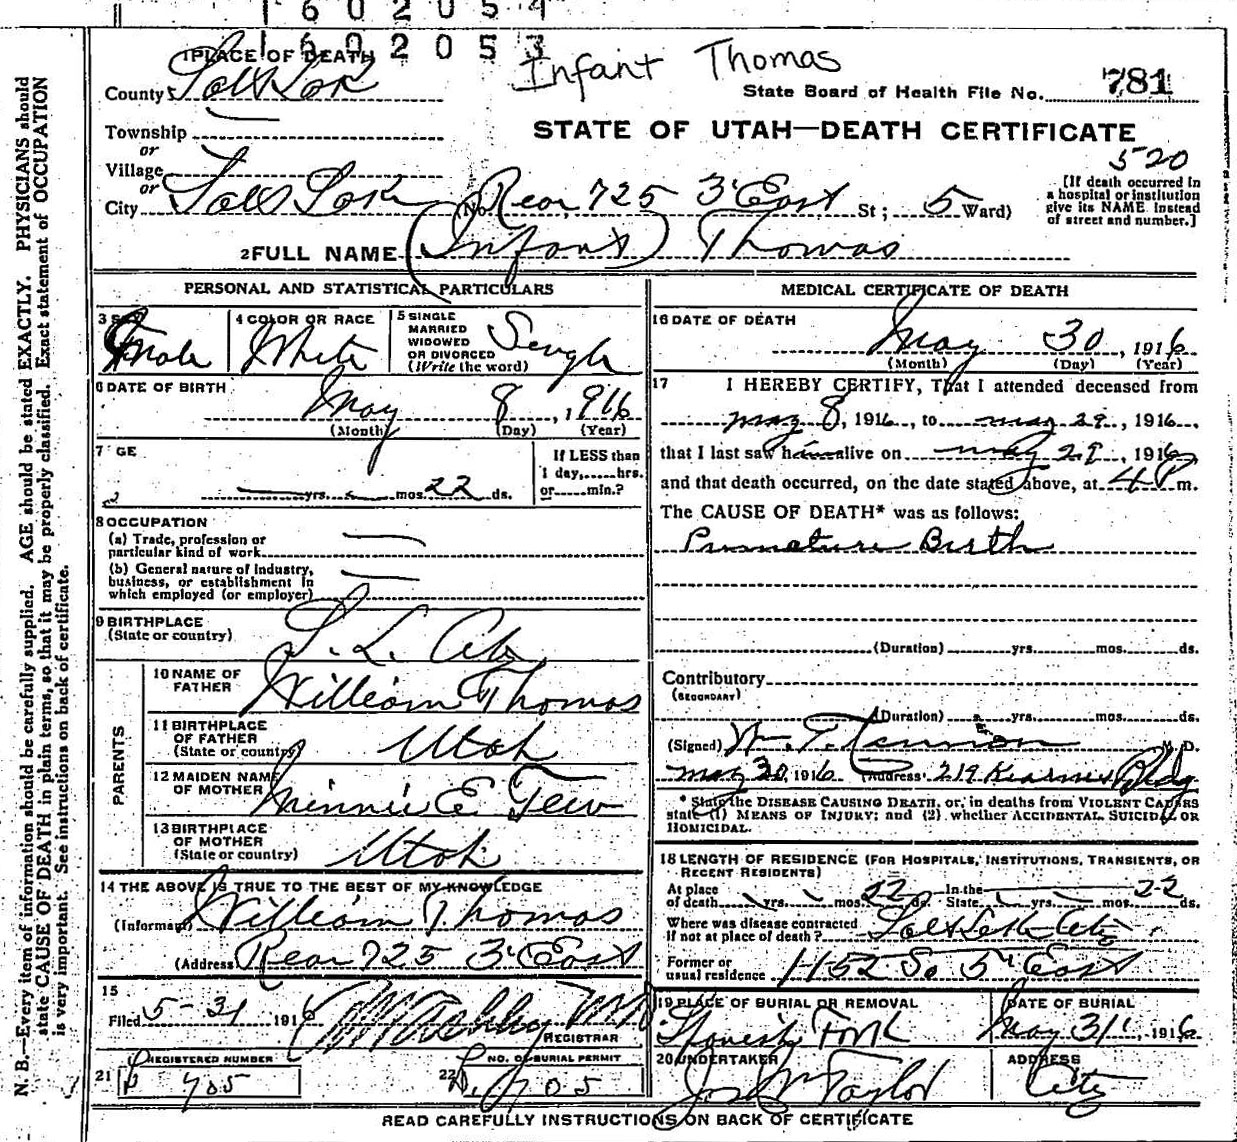 1 6 0 2 0 5 4
1 6 0 2 0 5 3
Infant Thomas
1 PLACE OF DEATH
County Salt Lake
State Board of Health File No. 781
STATE OF UTAH—DEATH CERTIFICATE
Township
or
Village
or
City Salt Lake (No. Rear 725 3' East St; 5 Ward)
520
[If death occurred in
a hospital or institution
give its NAME instead
of street and number.]
2 FULL NAME (Infant) Thomas
PERSONAL AND STATISTICAL PARTICULARS
3 SEX Male
4 COLOR OR RACE White
5 SINGLE
MARRIED
WIDOWED
OR DIVORCED
(Write the word) Single
6 DATE OF BIRTH
May 8, 1916
(Month) (Day) (Year)
7 AGE
yrs. mos. 22 ds.
If LESS than
1 day, hrs.
or min.?
8 OCCUPATION
(a) Trade, profession or
particular kind of work
(b) General nature of industry,
business, or establishment in
which employed (or employer)
9 BIRTHPLACE
(State or country) S. L. City
PARENTS
10 NAME OF
FATHER William Thomas
11 BIRTHPLACE
OF FATHER
(State or country) Utah
12 MAIDEN NAME
OF MOTHER Minnie E Tew
13 BIRTHPLACE
OF MOTHER
(State or country) Utah
14 THE ABOVE IS TRUE TO THE BEST OF MY KNOWLEDGE
(Informant) William Thomas
(Address Rear 725 3' East
15
Filed 5-31 1916 M.D.
REGISTRAR
REGISTERED NUMBER
21 705
NO. OF BURIAL PERMIT
22 705
MEDICAL CERTIFICATE OF DEATH
16 DATE OF DEATH
May 30, 1916
(Month) (Day) (Year)
17 I HEREBY CERTIFY, That I attended deceased from
may 8, 1916, to may 29, 1916,
that I last saw him alive on may 29, 1916
and that death occurred, on the date stated above, at 4 P m.
The CAUSE OF DEATH* was as follows:
Premature Birth
(Duration) yrs. mos. ds.
Contributory
(SECONDARY)
(Duration) yrs. mos. ds.
(Signed) W. T. M. D.
may 30, 1916 (Address 219 Kearns Bldg
* State the DISEASE CAUSING DEATH, or, in deaths from VIOLENT CAUSES
state (1) MEANS OF INJURY; and (2) whether ACCIDENTAL, SUICIDAL OR
HOMICIDAL.
18 LENGTH OF RESIDENCE (FOR HOSPITALS, INSTITUTIONS, TRANSIENTS, OR
RECENT RESIDENTS)
At place
of death yrs. mos. 22 ds. In the
State yrs. mos. 22 ds.
Where was disease contracted
If not at place of death? Salt Lake City
Former or
usual residence 1152 So 5' East
19 PLACE OF BURIAL OR REMOVAL
Spanish Fork
DATE OF BURIAL
May 31, 1916
20 UNDERTAKER
Jos Wm Taylor
ADDRESS
City
READ CAREFULLY INSTRUCTIONS ON BACK OF CERTIFICATE
N. B.—Every item of information should be carefully supplied. AGE should be stated EXACTLY. PHYSICIANS should
state CAUSE OF DEATH in plain terms, so that it may be properly classified. Exact statement of OCCUPATION
is very important. See instructions on back of certificate.